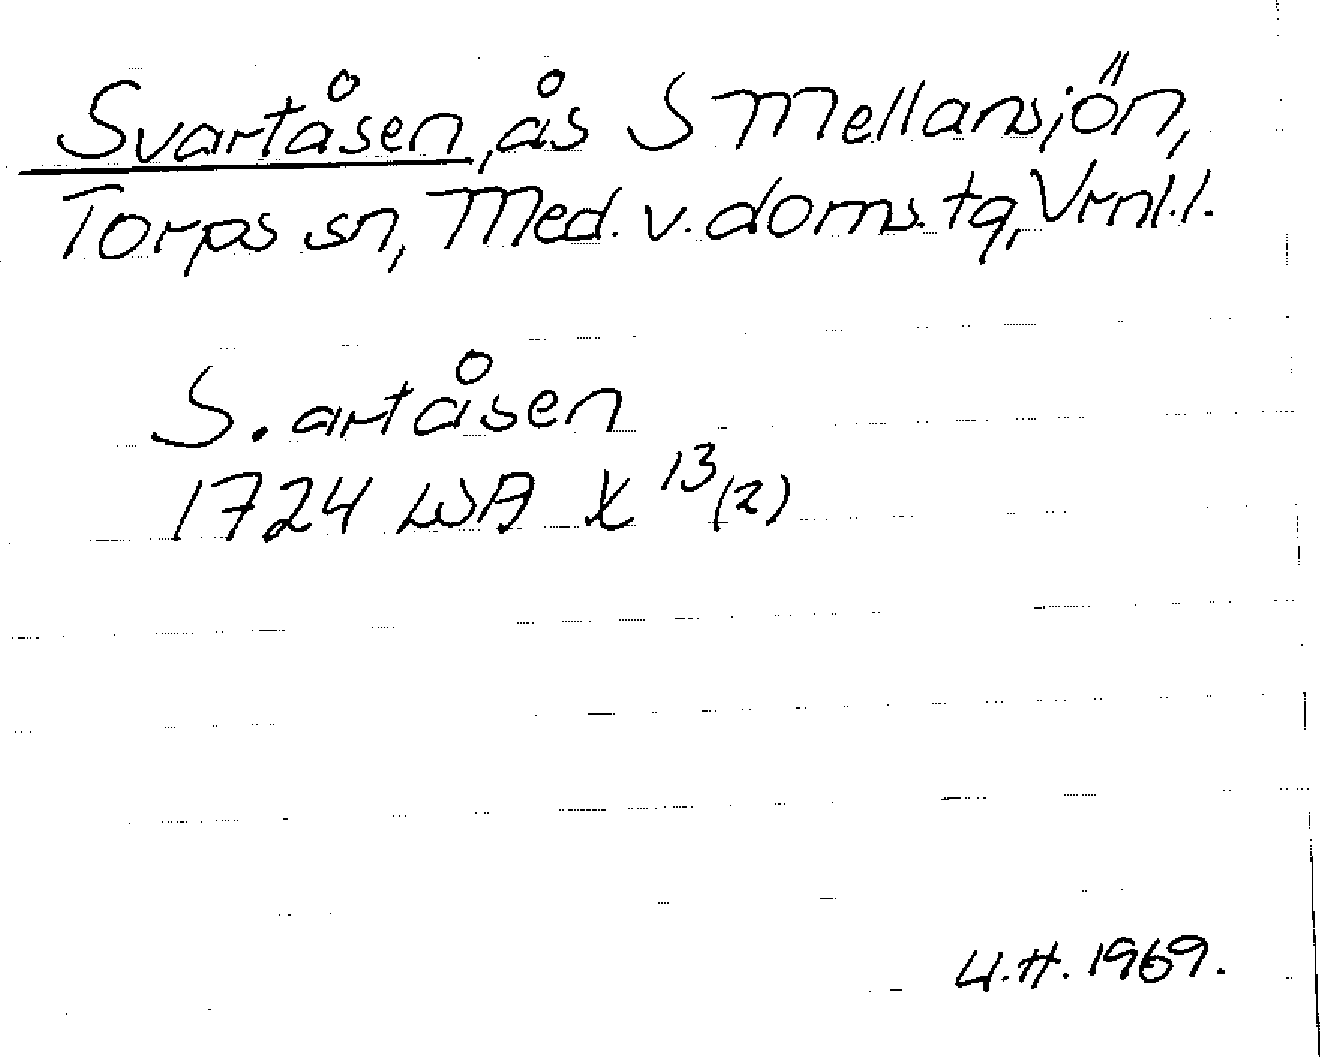 Svartåsen, ås S Mellansjön,
Torps sn, Med. v. doms. tg, Vrnl.l.
S.artåsen
1724 LWA X 13(2)
U.H. 1969.